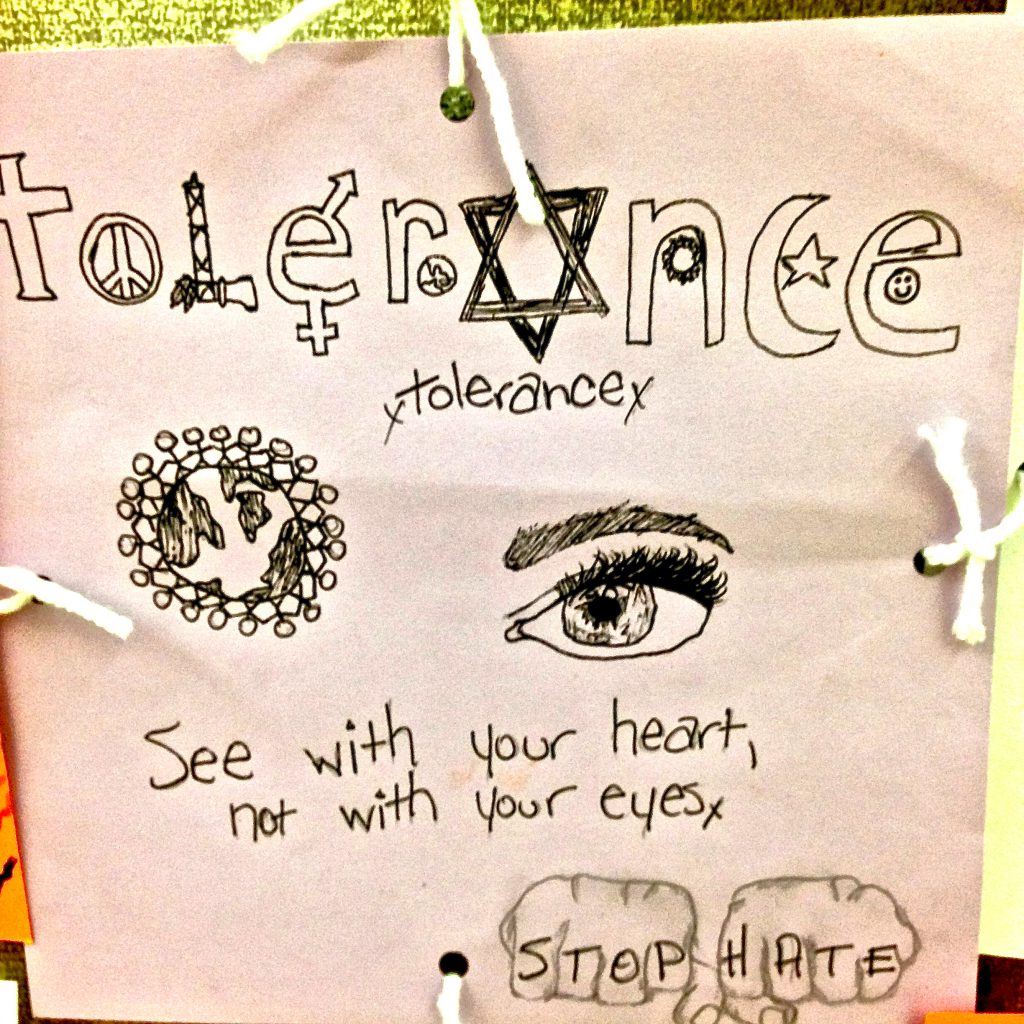 tolerance
xtolerancex
See with your heart,
not with your eyesx
STOP HATE